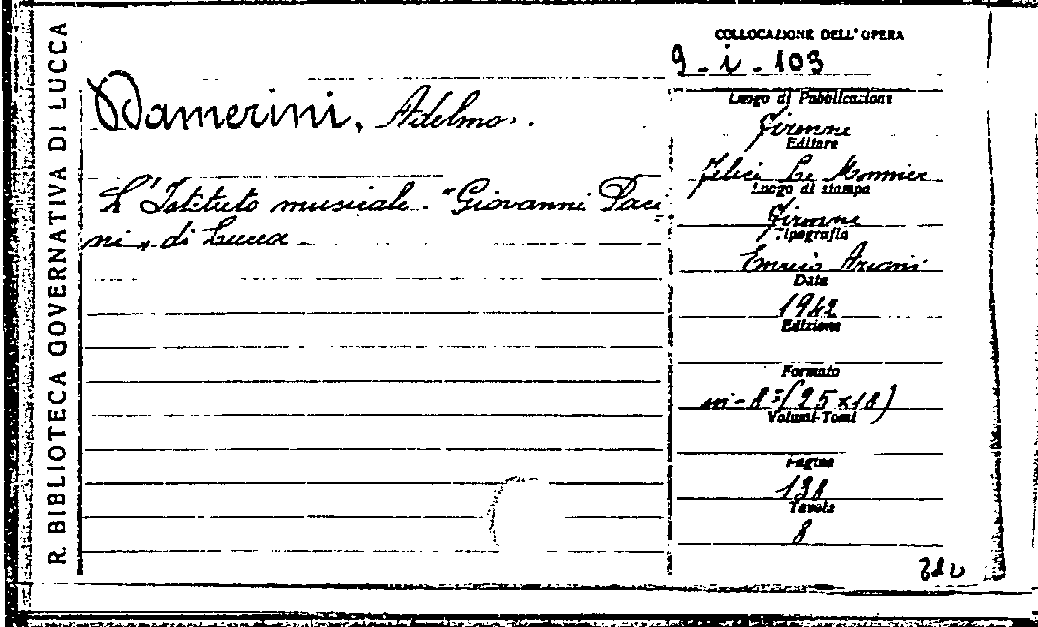 R. BIBLIOTECA GOVERNATIVA DI LUCCA
Damerini, Adelmo.
L'Istituto musicale "Giovanni Paci-
ni„ di Lucca
COLLOCAZIONE DELL'OPERA
9 - i - 103
Luogo di Pubblicazione
Firenze
Editore
Felice Le Monnier
Luogo di stampa
Firenze
Tipografia
Enrico Ariani
Data
1942
Edizione
Formato
in-8° (25 x 18)
Volumi-Tomi
Pagine
138
Tavole
8